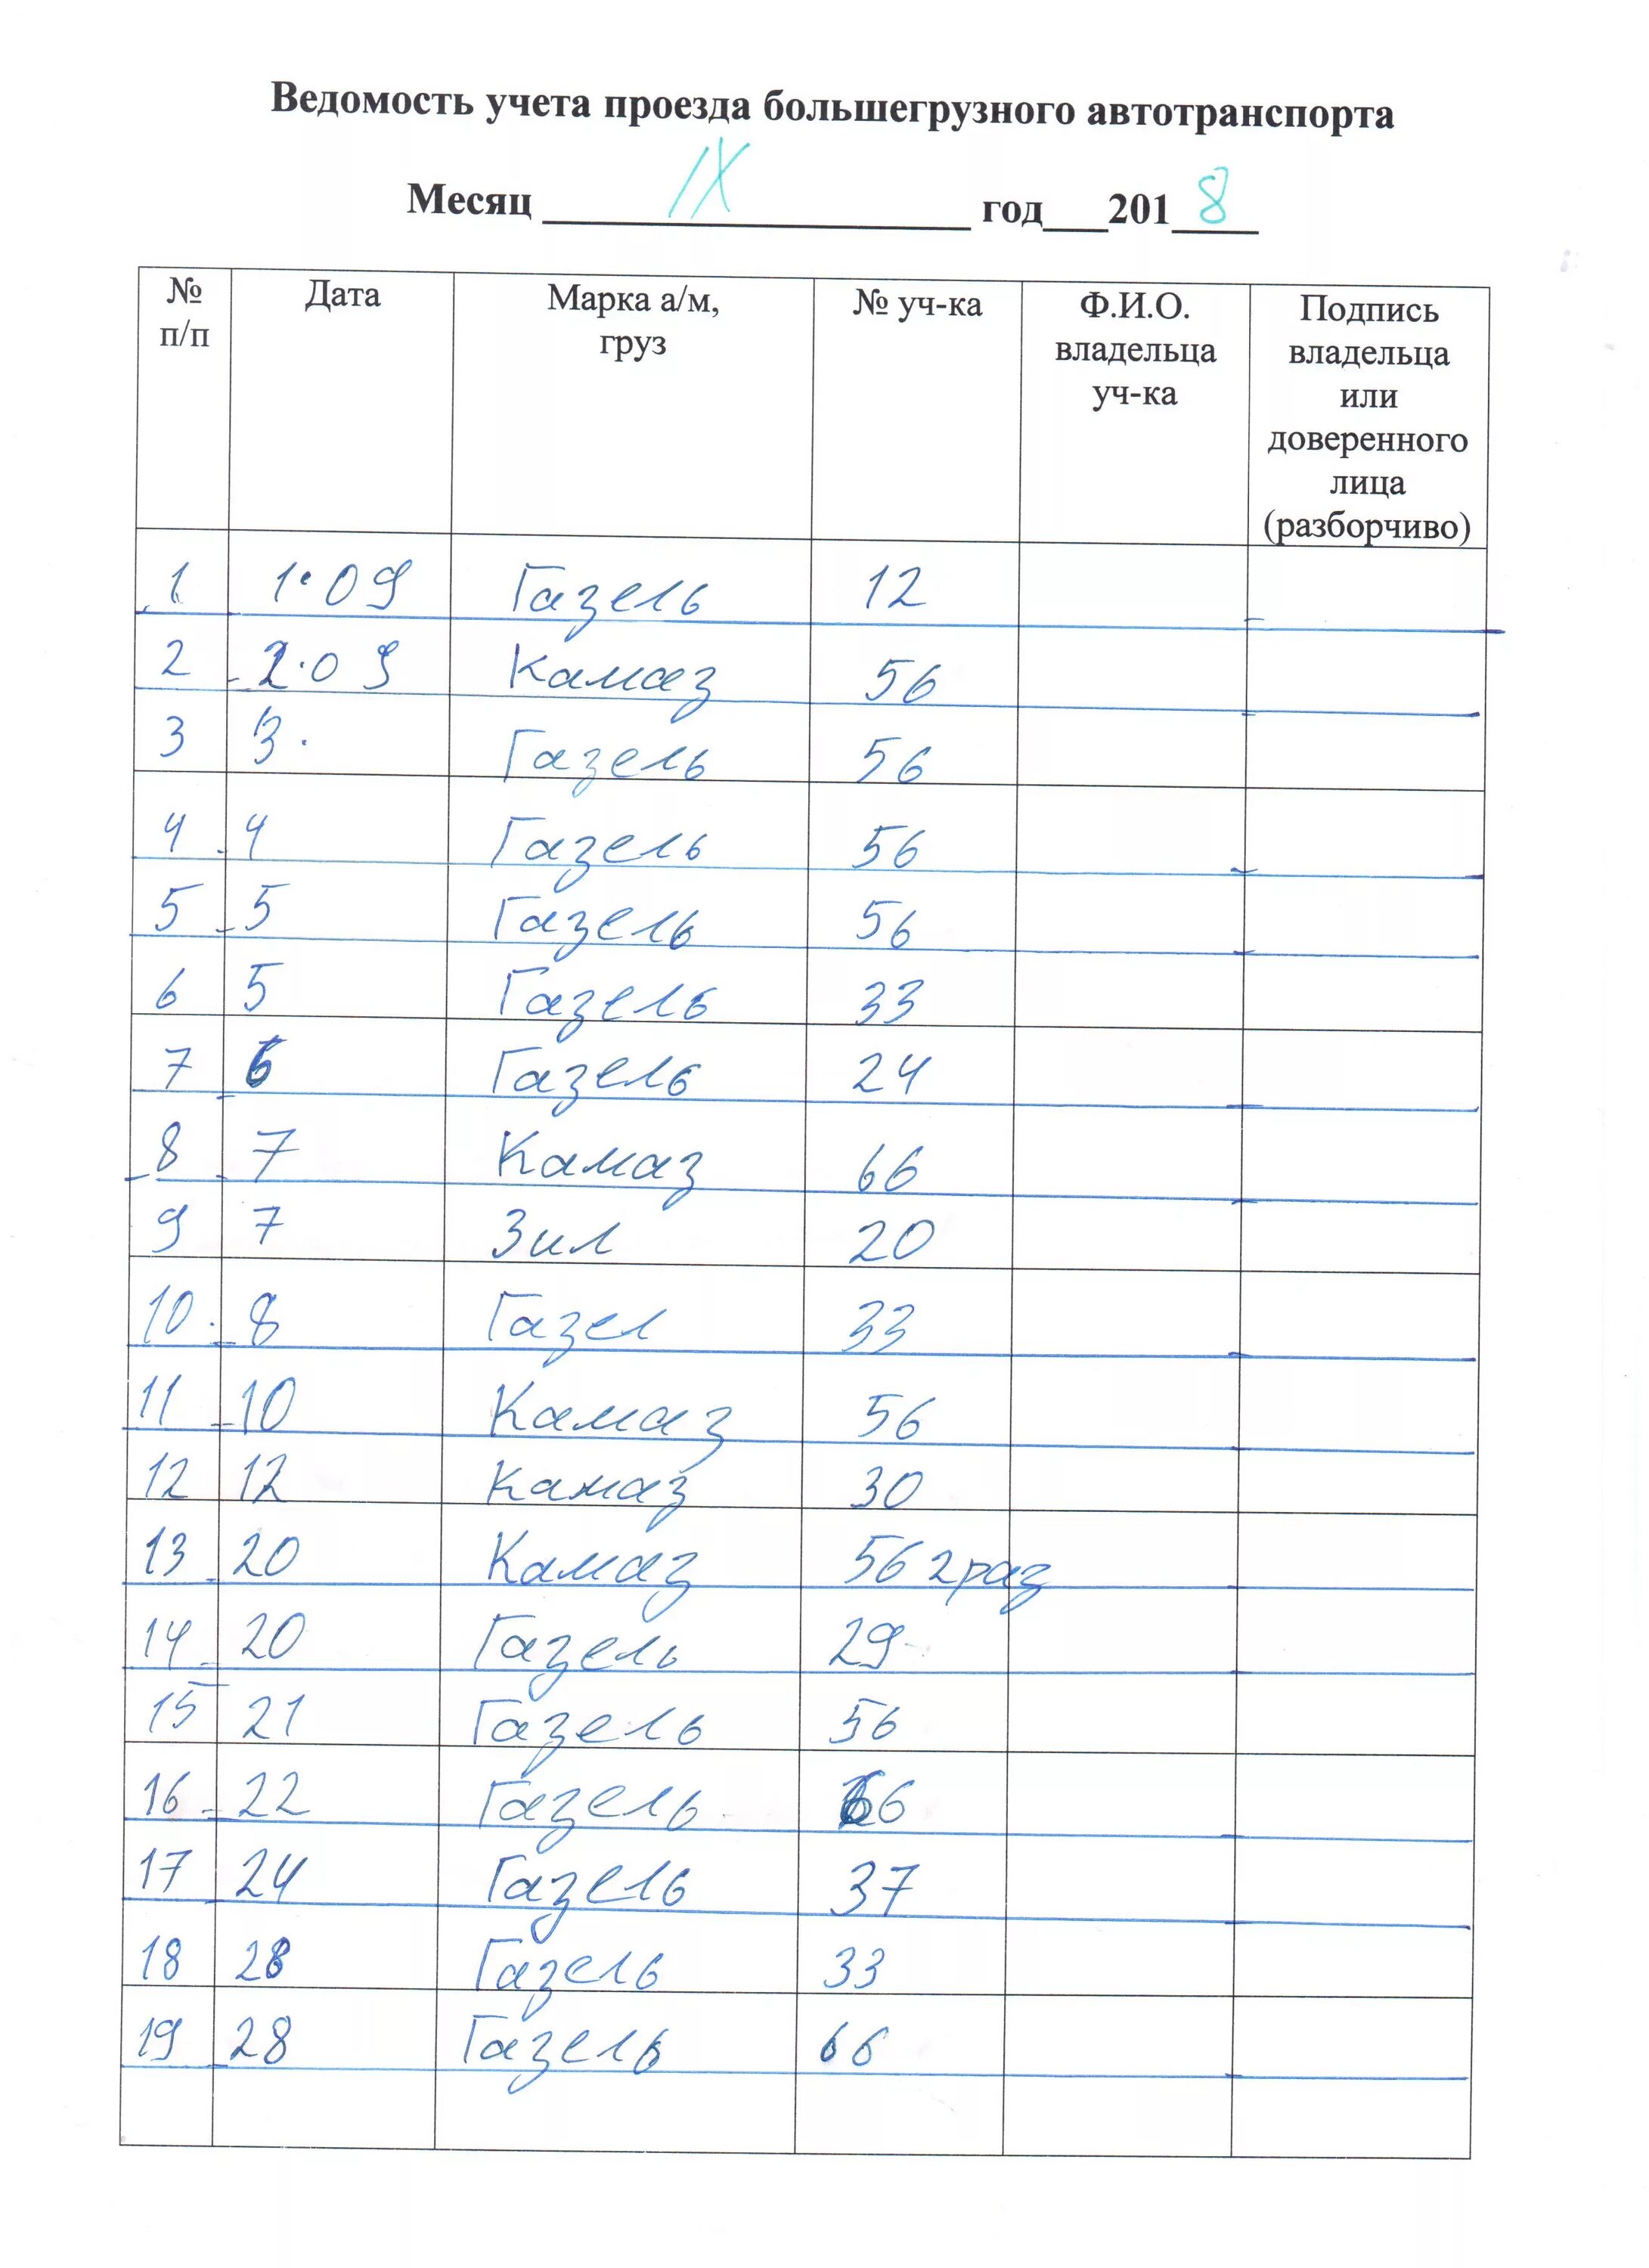 Ведомость учета проезда большегрузного автотранспорта
Месяц IX год 2018
№ п/п Дата Марка а/м, груз № уч-ка Ф.И.О. владельца уч-ка Подпись владельца или доверенного лица (разборчиво)
1 1.09 Газель 12
2 2.09 Камаз 56
3 3. Газель 56
4 4 Газель 56
5 5 Газель 56
6 5 Газель 33
7 6 Газель 24
8 7 Камаз 66
9 7 Зил 20
10. 8 Газел 33
11 10 Камаз 56
12 12 Камаз 30
13 20 Камаз 56 2 раз
14 20 Газель 29
15 21 Газель 56
16 22 Газель 66
17 24 Газель 37
18 28 Газель 33
19 28 Газель 66